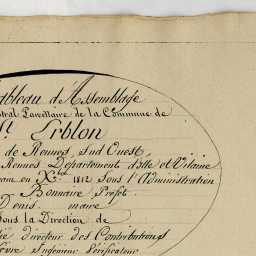 ableau d'Assemblage
tral Parcellaire de la Commune de
St Erblon
de Rennes, sud Ouest
Rennes Département d'Ille et Vilaine
en Xbre 1812 Sous l'Administration
Bonnaire Préfet
Denis maire
Sous la Direction de
directeur des Contributions
Ingénieur Vérificateur